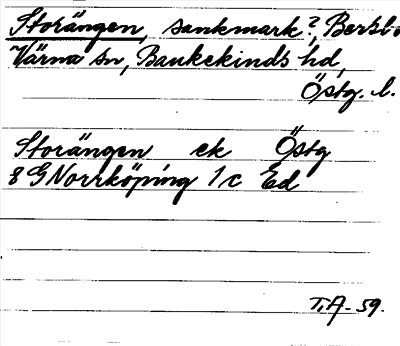 Storängen, sankmark?, Berkl
Värna sn, Bankekinds hd,
Östg. l.
Storängen ek Östg
8 G Norrköping 1 c Ed
T.A. 59.